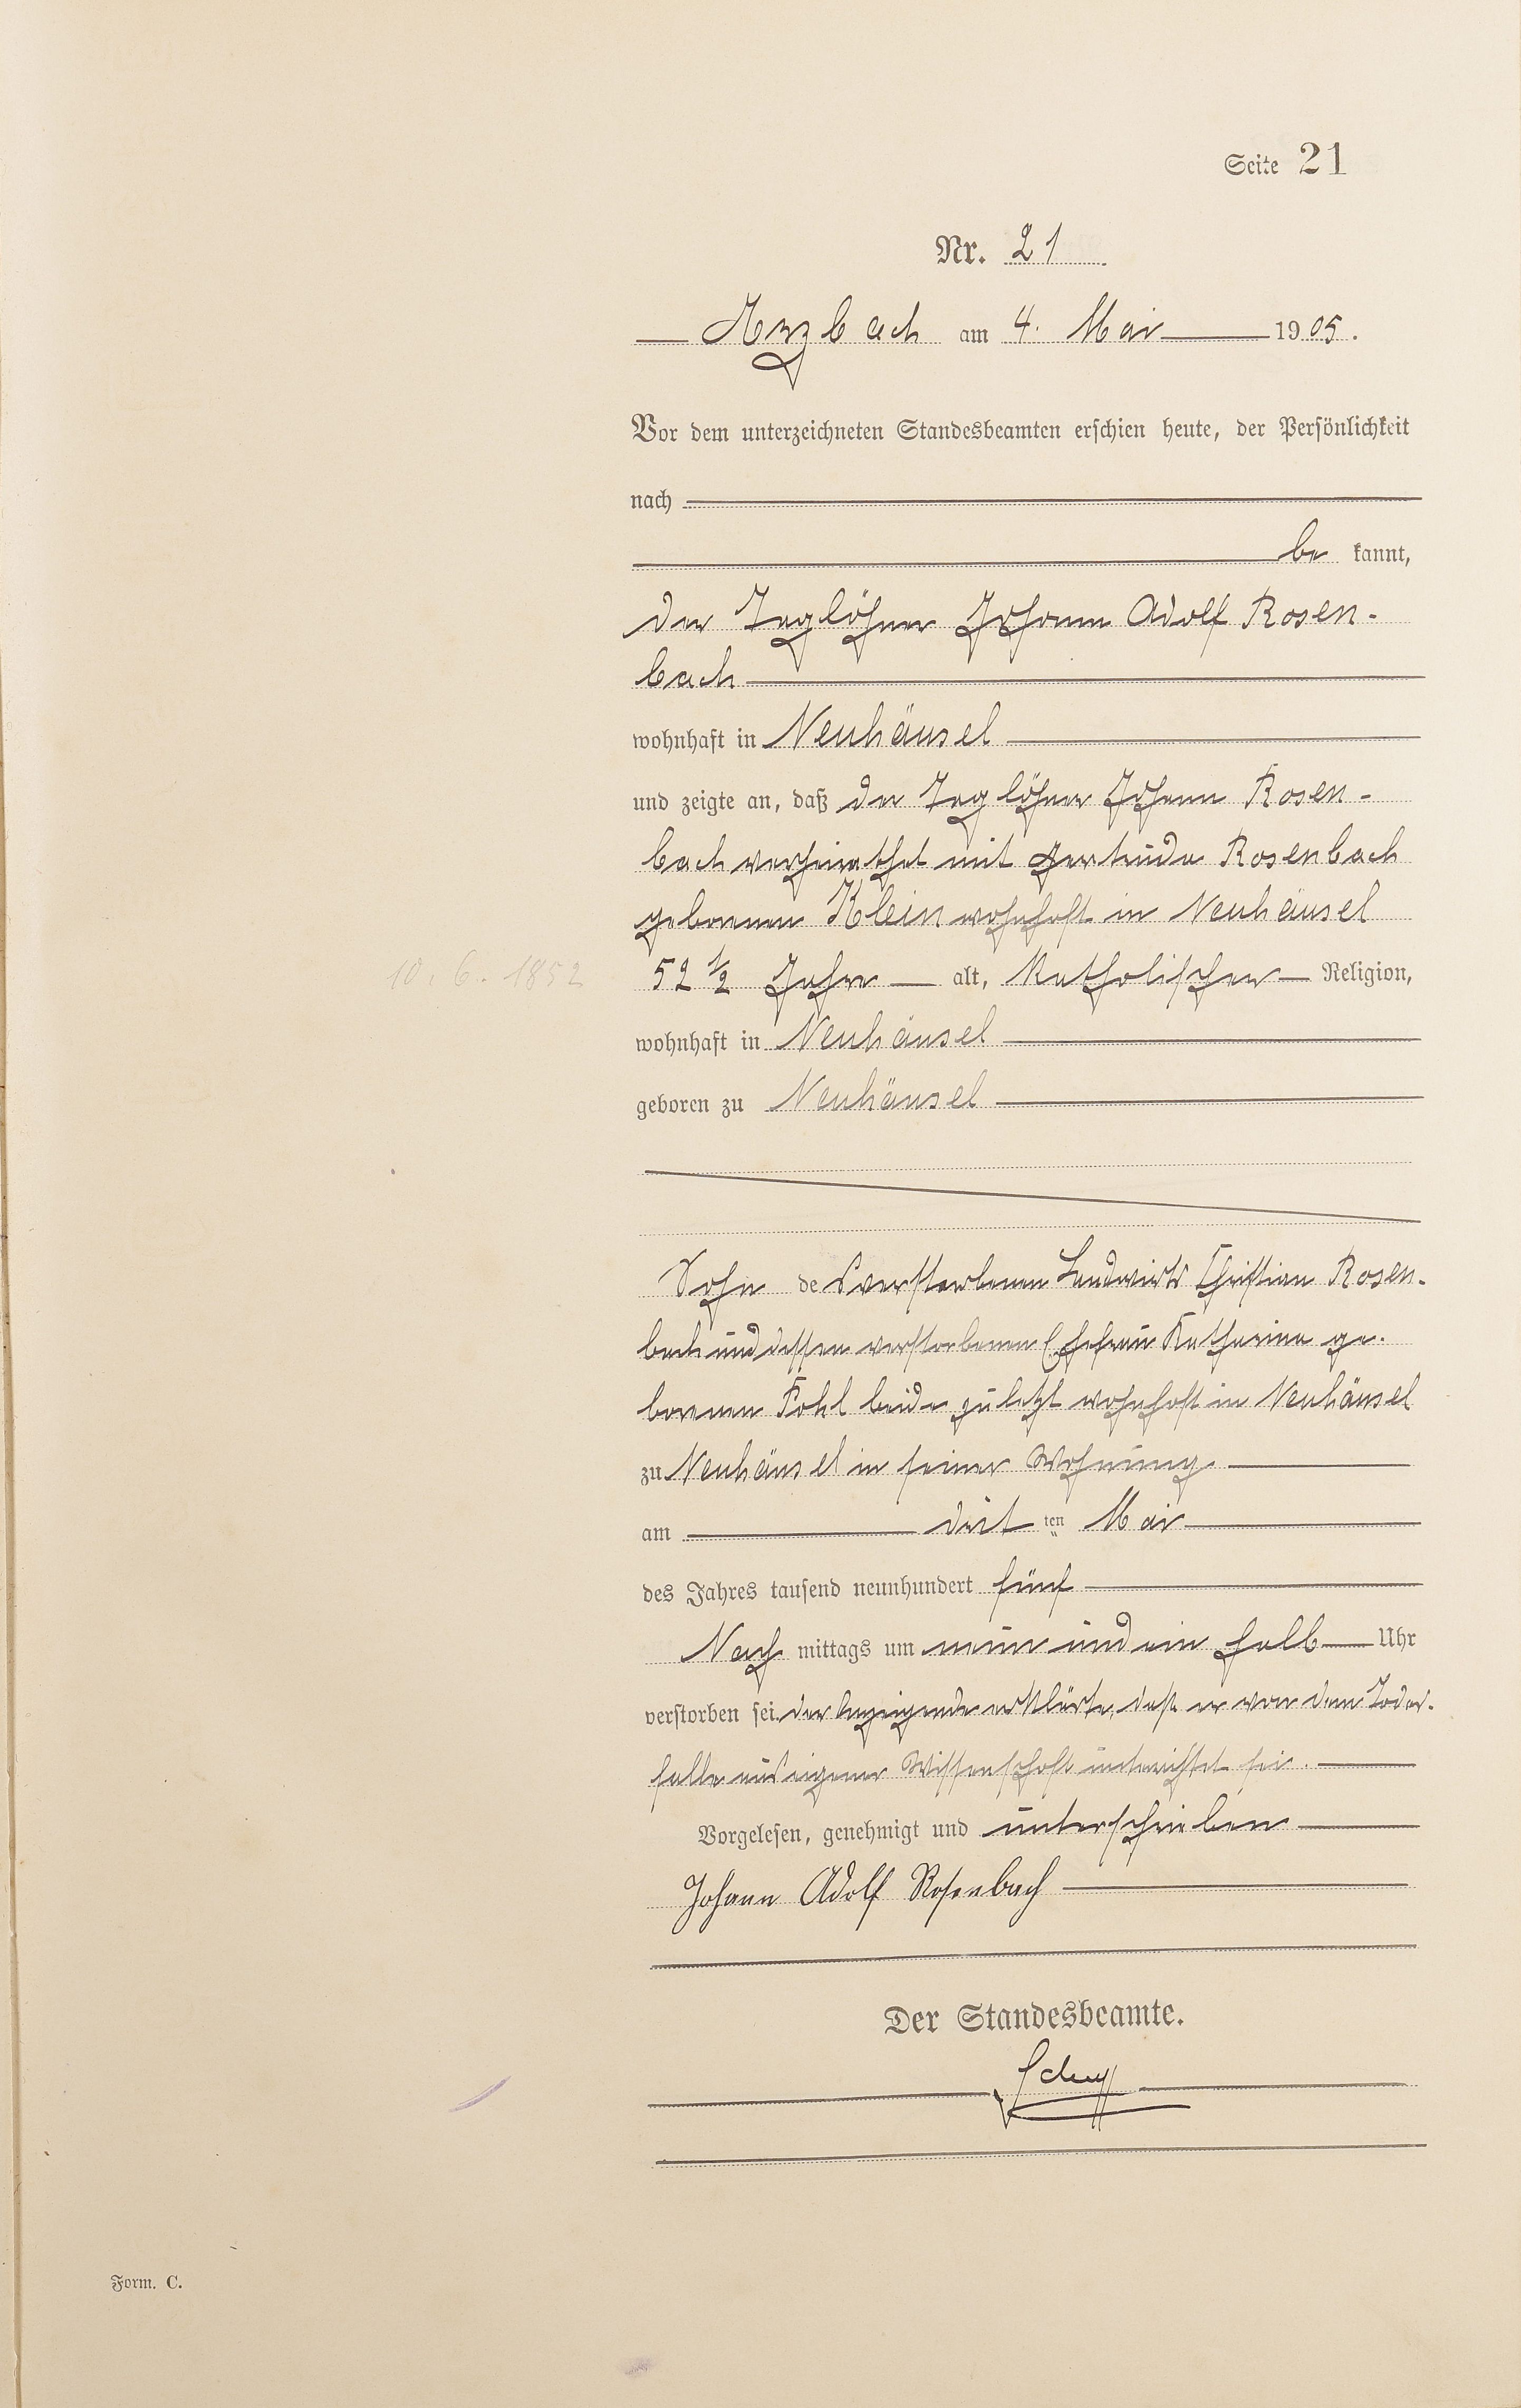 Seite 21
Nr. 21
Arzbach am 4. Mai 1905.
Vor dem unterzeichneten Standesbeamten erschien heute, der Persönlichkeit
nach
be kannt,
der Taglöhner Johann Adolf Rosen-
bach
wohnhaft in Neuhäusel
und zeigte an, daß der Taglöhner Johann Rosen-
bach verheirathet mit Gertrude Rosenbach
geborenen Klein wohnhaft in Neuhäusel
10. 6. 1852
52 1/2 Jahre alt, Katholischer Religion,
wohnhaft in Neuhäusel
geboren zu Neuhäusel
Sohn des verstorbenen Landwirts Christian Rosen-
bach und dessen verstorbenen Ehefrau Katharina ge-
borenen Pohl beide zuletzt wohnhaft in Neuhäusel
zu Neuhäusel in seiner Wohnung
am dritten Mai
des Jahres tausend neunhundert fünf
Nach mittags um neun und ein halb Uhr
verstorben sei. der Anzeigende erklärte, daß er von dem Todes-
falle aus eigener Wissenschaft unterrichtet sei.
Vorgelesen, genehmigt und unterschrieben
Johann Adolf Rosenbach
Der Standesbeamte.
Form. C.